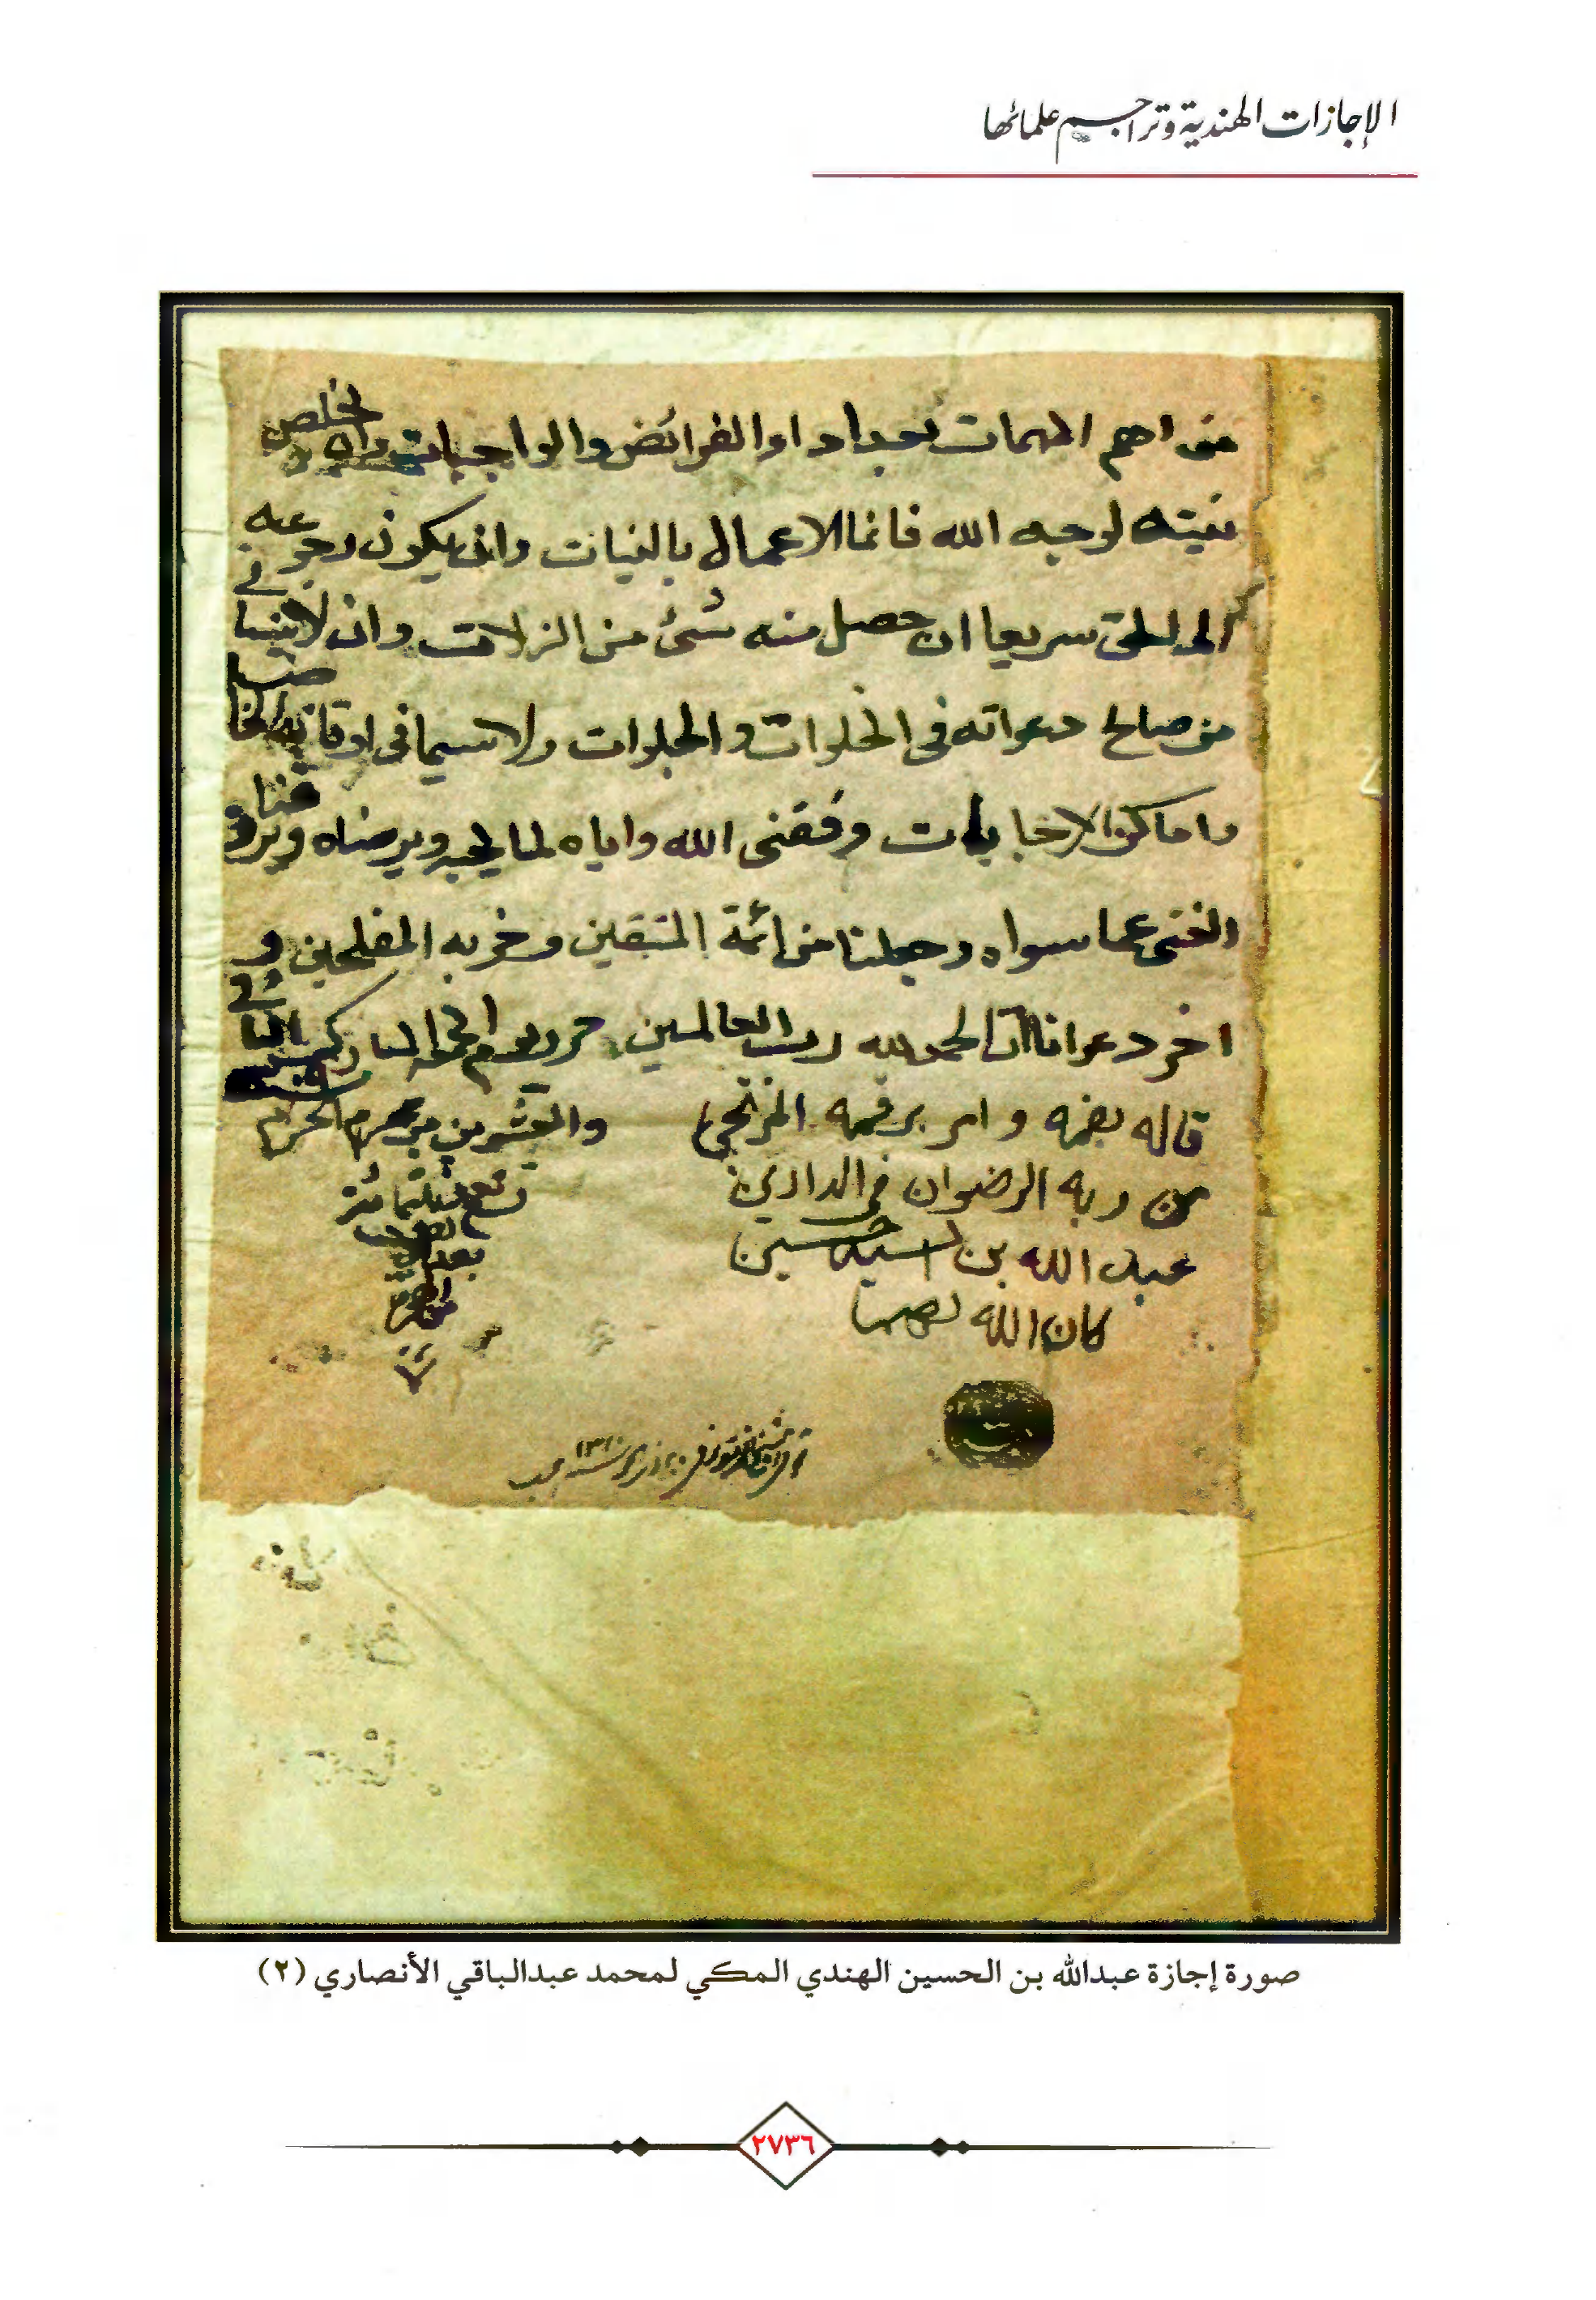 الإجازات الهندية وتراجم علمائها
من اهم المهمات بعد اداء الفرائض والواجبات وان يخلص
نيته لوجه الله فانما الاعمال بالنيات وان يكون رجوعه
الى الحق سريعا ان حصل منه شئ من الزلات وان لا ينساني
من صالح دعواته في الخلوات والجلوات ولا سيما في اوقات
واماكن الاجابات وفقني الله واياه لما يحبه ويرضاه ويرزقنا
الغنى عما سواه وجعلنا من ائمة المتقين وحزبه المفلحين و
اخر دعوانا ان الحمد لله رب العالمين حرر يوم المبارك
قاله بفمه وامر برقمه المرتجي
والعشرين من محرم الحرام
من ربه الرضوان في الدارين
عبد الله بن السيد حسين
كان الله لهما
١٣١٠
صورة إجازة عبدالله بن الحسين الهندي المكي لمحمد عبدالباقي الأنصاري (٢)
٢٧٣٦